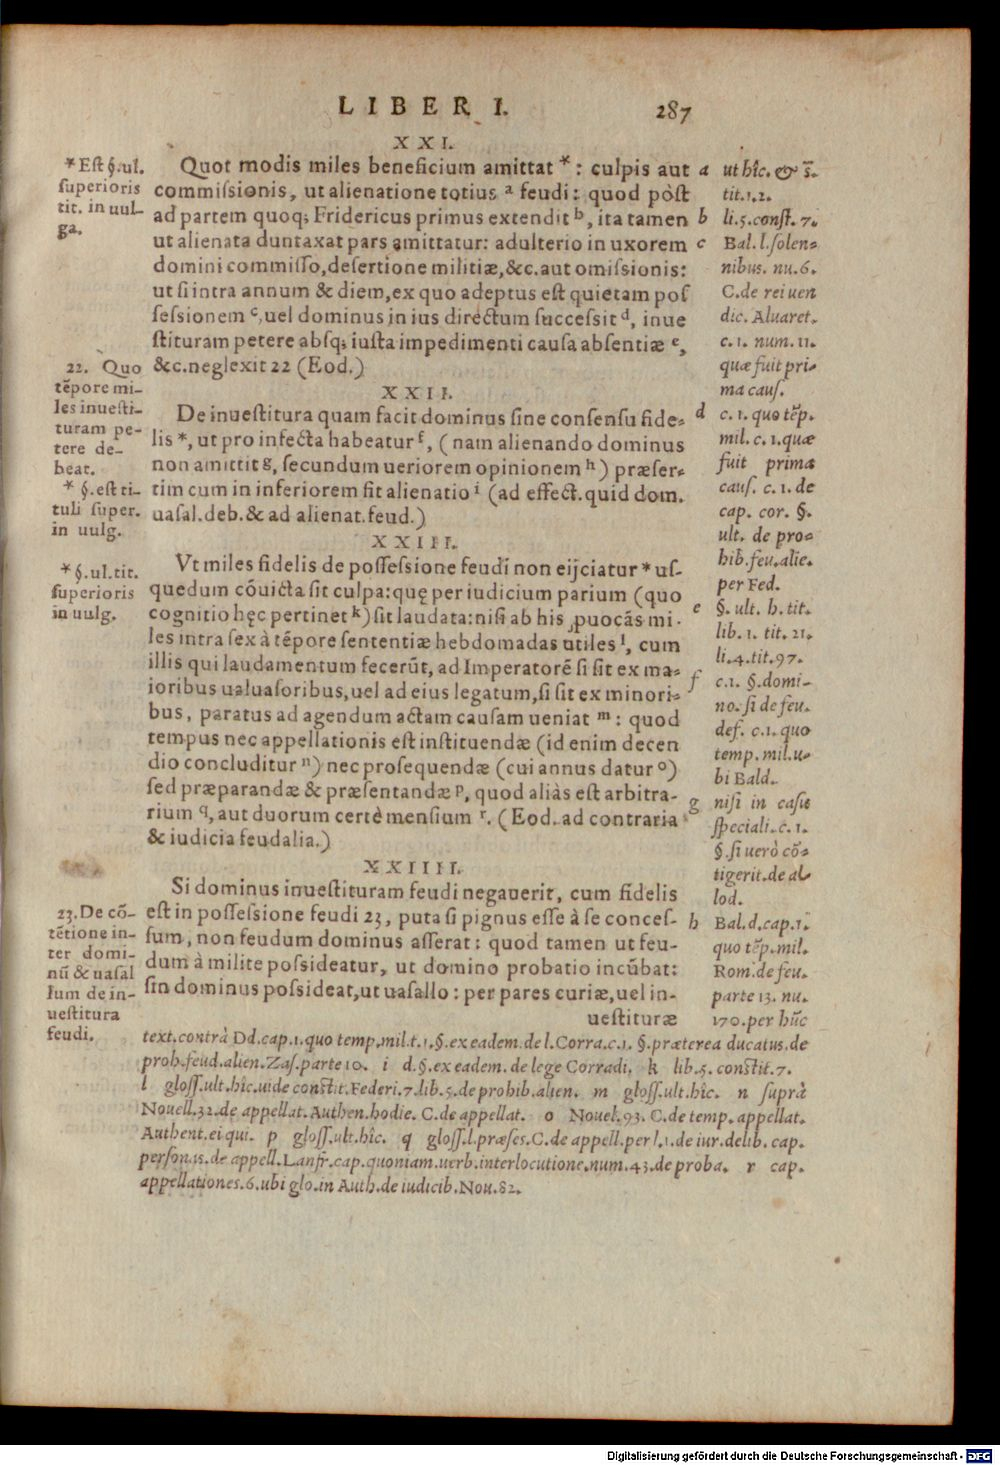 LIBER I. 287
XXI.
Quot modis miles beneficium amittat *: culpis aut
commißionis, ut alienatione totius a feudi: quod pòst
ad partem quoq; Fridericus primus extendit b, ita tamen
ut alienata duntaxat pars amittatur: adulterio in uxorem
domini commisso, desertione militiæ, &c. aut omißionis:
ut si intra annum & diem, ex quo adeptus est quietam pos
seßionem c, uel dominus in ius directum succeßit d, inue
stituram petere absq; iusta impedimenti causa absentiæ e,
&c. neglexit 22 (Eod.)
XXII.
De inuestitura quam facit dominus sine consensu fide-
lis *, ut pro infecta habeatur f, (nam alienando dominus
non amittit g, secundum ueriorem opinionem h) præser-
tim cum in inferiorem fit alienatio i (ad effect. quid dom.
uasal. deb. & ad alienat. feud.)
XXIII.
Vt miles fidelis de posseßione feudi non eijciatur * us-
quedum cõuicta sit culpa: quę per iudicium parium (quo
cognitio hęc pertinet k) sit laudata: nisi ab his ꝓuocãs mi-
les intra sex à tẽpore sententiæ hebdomadas utiles l, cum
illis qui laudamentum fecerũt, ad Imperatorẽ si sit ex ma-
ioribus ualuasoribus, uel ad eius legatum, si sit ex minori-
bus, paratus ad agendum actam causam ueniat m: quod
tempus nec appellationis est instituendæ (id enim decen
dio concluditur n) nec prosequendæ (cui annus datur o)
sed præparandæ & præsentandæ p, quod aliàs est arbitra-
rium q, aut duorum certè mensium r. (Eod. ad contraria
& iudicia feudalia.)
XXIIII.
Si dominus inuestituram feudi negauerit, cum fidelis
est in posseßione feudi 23, puta si pignus esse à se conces-
sum, non feudum dominus asserat: quod tamen ut feu-
dum à milite poßideatur, ut domino probatio incũbat:
sin dominus poßideat, ut uasallo: per pares curiæ, uel in-
uestituræ
* Est §. ul.
superioris
tit. in uul-
ga.
22. Quo
tẽpore mi-
les inuesti-
turam pe-
tere de-
beat.
* §. est ti-
tuli super.
in uulg.
* §. ul. tit.
superioris
in uulg.
23. De cõ-
tẽtione in-
ter domi-
nũ & uasal
lum de in-
uestitura
feudi.
a ut hîc. & s̃.
tit. 1. 2.
b li. 5. const. 7.
c Bal. l. solen-
nibus. nu. 6.
C. de rei uen
dic. Aluaret.
c. 1. num. 11.
quæ fuit pri-
ma caus.
d c. 1. quo tẽp.
mil. c. 1. quæ
fuit prima
caus. c. 1. de
cap. cor. §.
ult. de pro-
hib. feu. alie.
per Fed.
e §. ult. h. tit.
lib. 1. tit. 21.
li. 4. tit. 97.
f c. 1. §. domi-
no. si de feu.
def. c. 1. quo
temp. mil. u-
bi Bald.
g nisi in casu
speciali. c. 1.
§. si uerò cõ-
tigerit. de al-
lod.
h Bal. d. cap. 1.
quo tẽp. mil.
Rom. de feu.
parte 13. nu.
170. per hũc
text. contrà Dd. cap. 1. quo temp. mil. t. 1. §. ex eadem. de l. Corra. c. 1. §. præterea ducatus. de
proh. feud. alien. Zas. parte 10. i d. §. ex eadem. de lege Corradi. k lib. 5. constit. 7.
l gloss. ult. hîc. uide constit. Federi. 7. lib. 5. de prohib. alien. m gloss. ult. hîc. n suprà
Nouell. 32. de appellat. Authen. hodie. C. de appellat. o Nouel. 93. C. de temp. appellat.
Authent. ei qui. p gloss. ult. hîc. q gloss. l. præses. C. de appell. per l. 1. de iur. delib. cap.
person. 15. de appell. Lanfr. cap. quoniam. uerb. interlocutione. num. 43. de proba. r cap.
appellationes. 6. ubi glo. in Auth. de iudicib. Nou. 82.
Digitalisierung gefördert durch die Deutsche Forschungsgemeinschaft - DFG